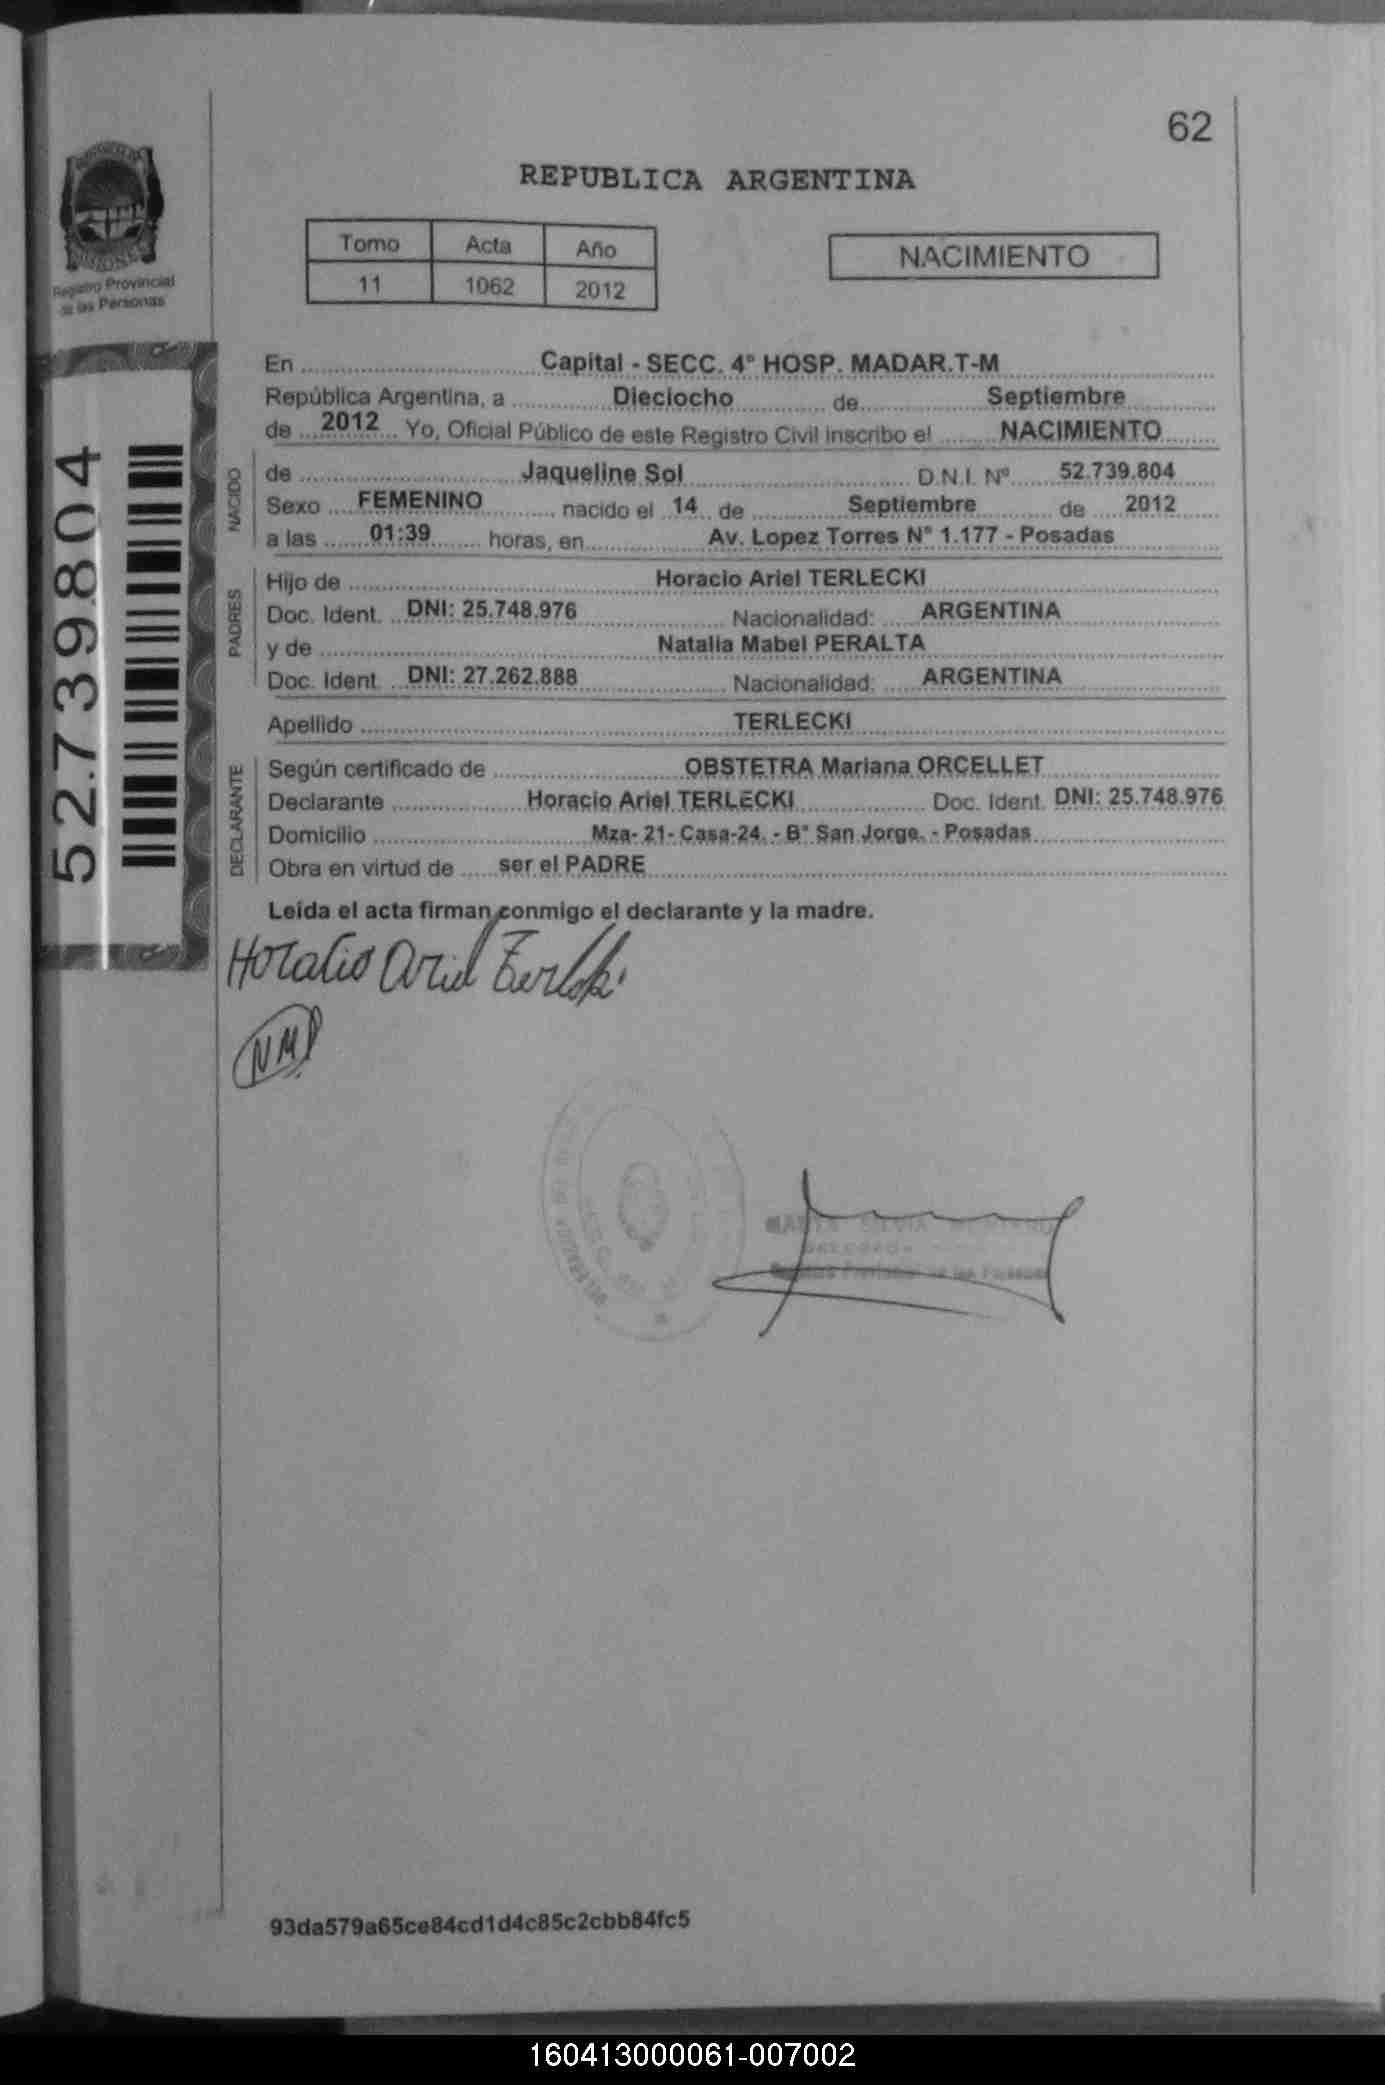 62
REPUBLICA ARGENTINA
Tomo Acta Año
11 1062 2012
NACIMIENTO
Registro Provincial
de las Personas
52.739.804
En Capital - SECC. 4° HOSP. MADAR.T-M
República Argentina, a Dieciocho de Septiembre
de 2012 Yo, Oficial Público de este Registro Civil inscribo el NACIMIENTO
NACIDO
de Jaqueline Sol D.N.I. Nº 52.739.804
Sexo FEMENINO nacido el 14 de Septiembre de 2012
a las 01:39 horas, en Av. Lopez Torres N° 1.177 - Posadas
PADRES
Hijo de Horacio Ariel TERLECKI
Doc. Ident. DNI: 25.748.976 Nacionalidad: ARGENTINA
y de Natalia Mabel PERALTA
Doc. Ident. DNI: 27.262.888 Nacionalidad: ARGENTINA
Apellido TERLECKI
DECLARANTE
Según certificado de OBSTETRA Mariana ORCELLET
Declarante Horacio Ariel TERLECKI Doc. Ident. DNI: 25.748.976
Domicilio Mza- 21- Casa-24. - B° San Jorge. - Posadas
Obra en virtud de ser el PADRE
Leída el acta firman conmigo el declarante y la madre.
Horacio Ariel Terlecki
NMP
93da579a65ce84cd1d4c85c2cbb84fc5
160413000061-007002